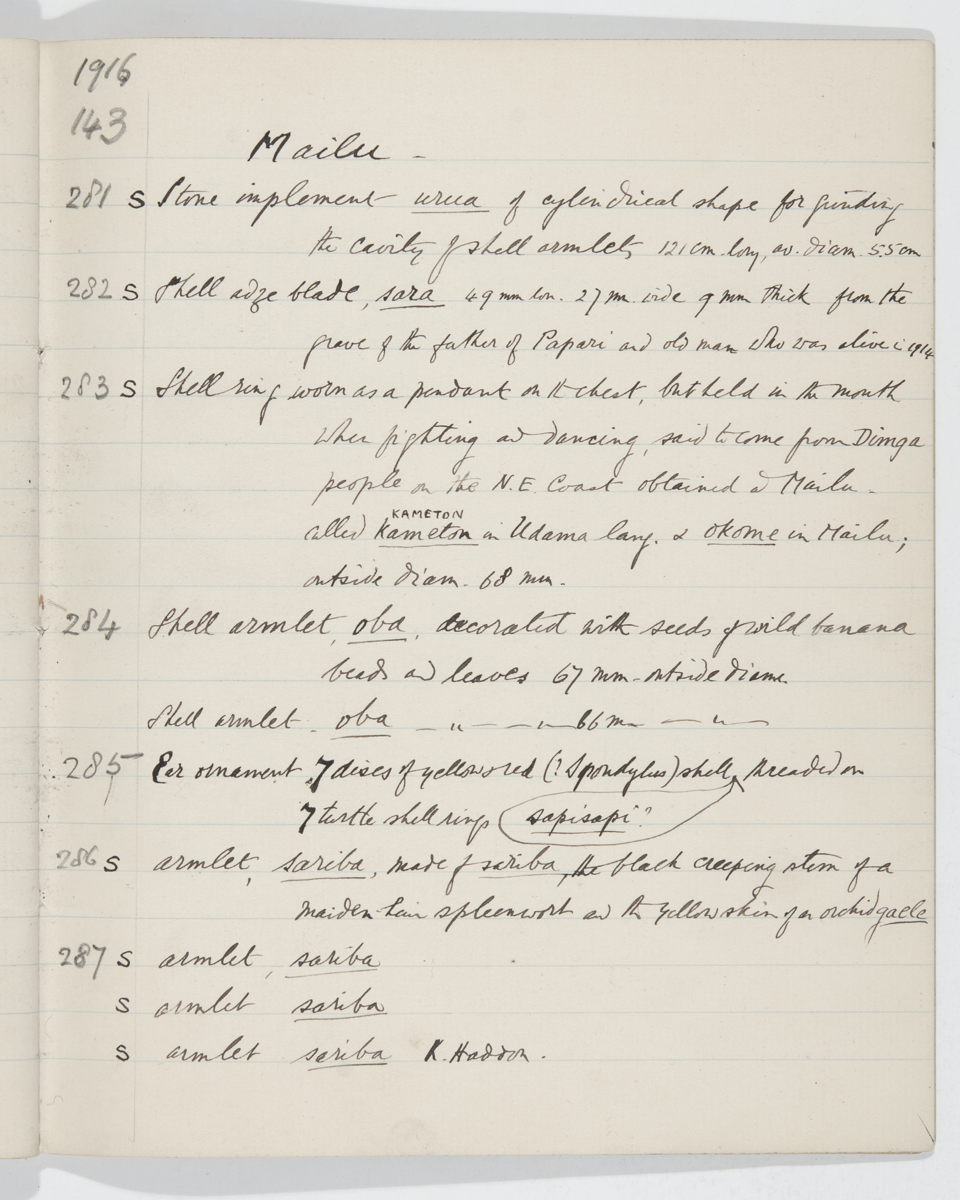 1916
143
Mailu -
281 S Stone implement urua of cylindrical shape for grinding
the cavity of shell armlets 121 cm. long, av. diam. 5.5 cm
282 S Shell adze blade, sara 49 mm lon. 27 mm wide 9 mm thick from the
grave of the father of Papari and old man who was alive in 1914
283 S Shell ring worn as a pendant on the chest, but held in the mouth
when fighting and dancing, said to come from Dimga
people on the N.E. Coast obtained at Mailu -
KAMETON
called Kameton in Udama lang. & okome in Mailu;
outside diam. 68 mm.
284 Shell armlet, oba, decorated with seeds of wild banana
beads and leaves 67 mm - outside diam.
Shell armlet . oba — " — — " — 66 m — " —
285 Ear ornament, 7 discs of yellow & red (? Spondylus) shell, threaded on
7 turtle shell rings sapisapi?
286 S armlet, sariba, made of sariba, the black creeping stem of a
maiden-hair spleenwort and the yellow skin of an orchid gaele
287 S armlet, sariba
S armlet sariba
S armlet sariba K. Haddon.